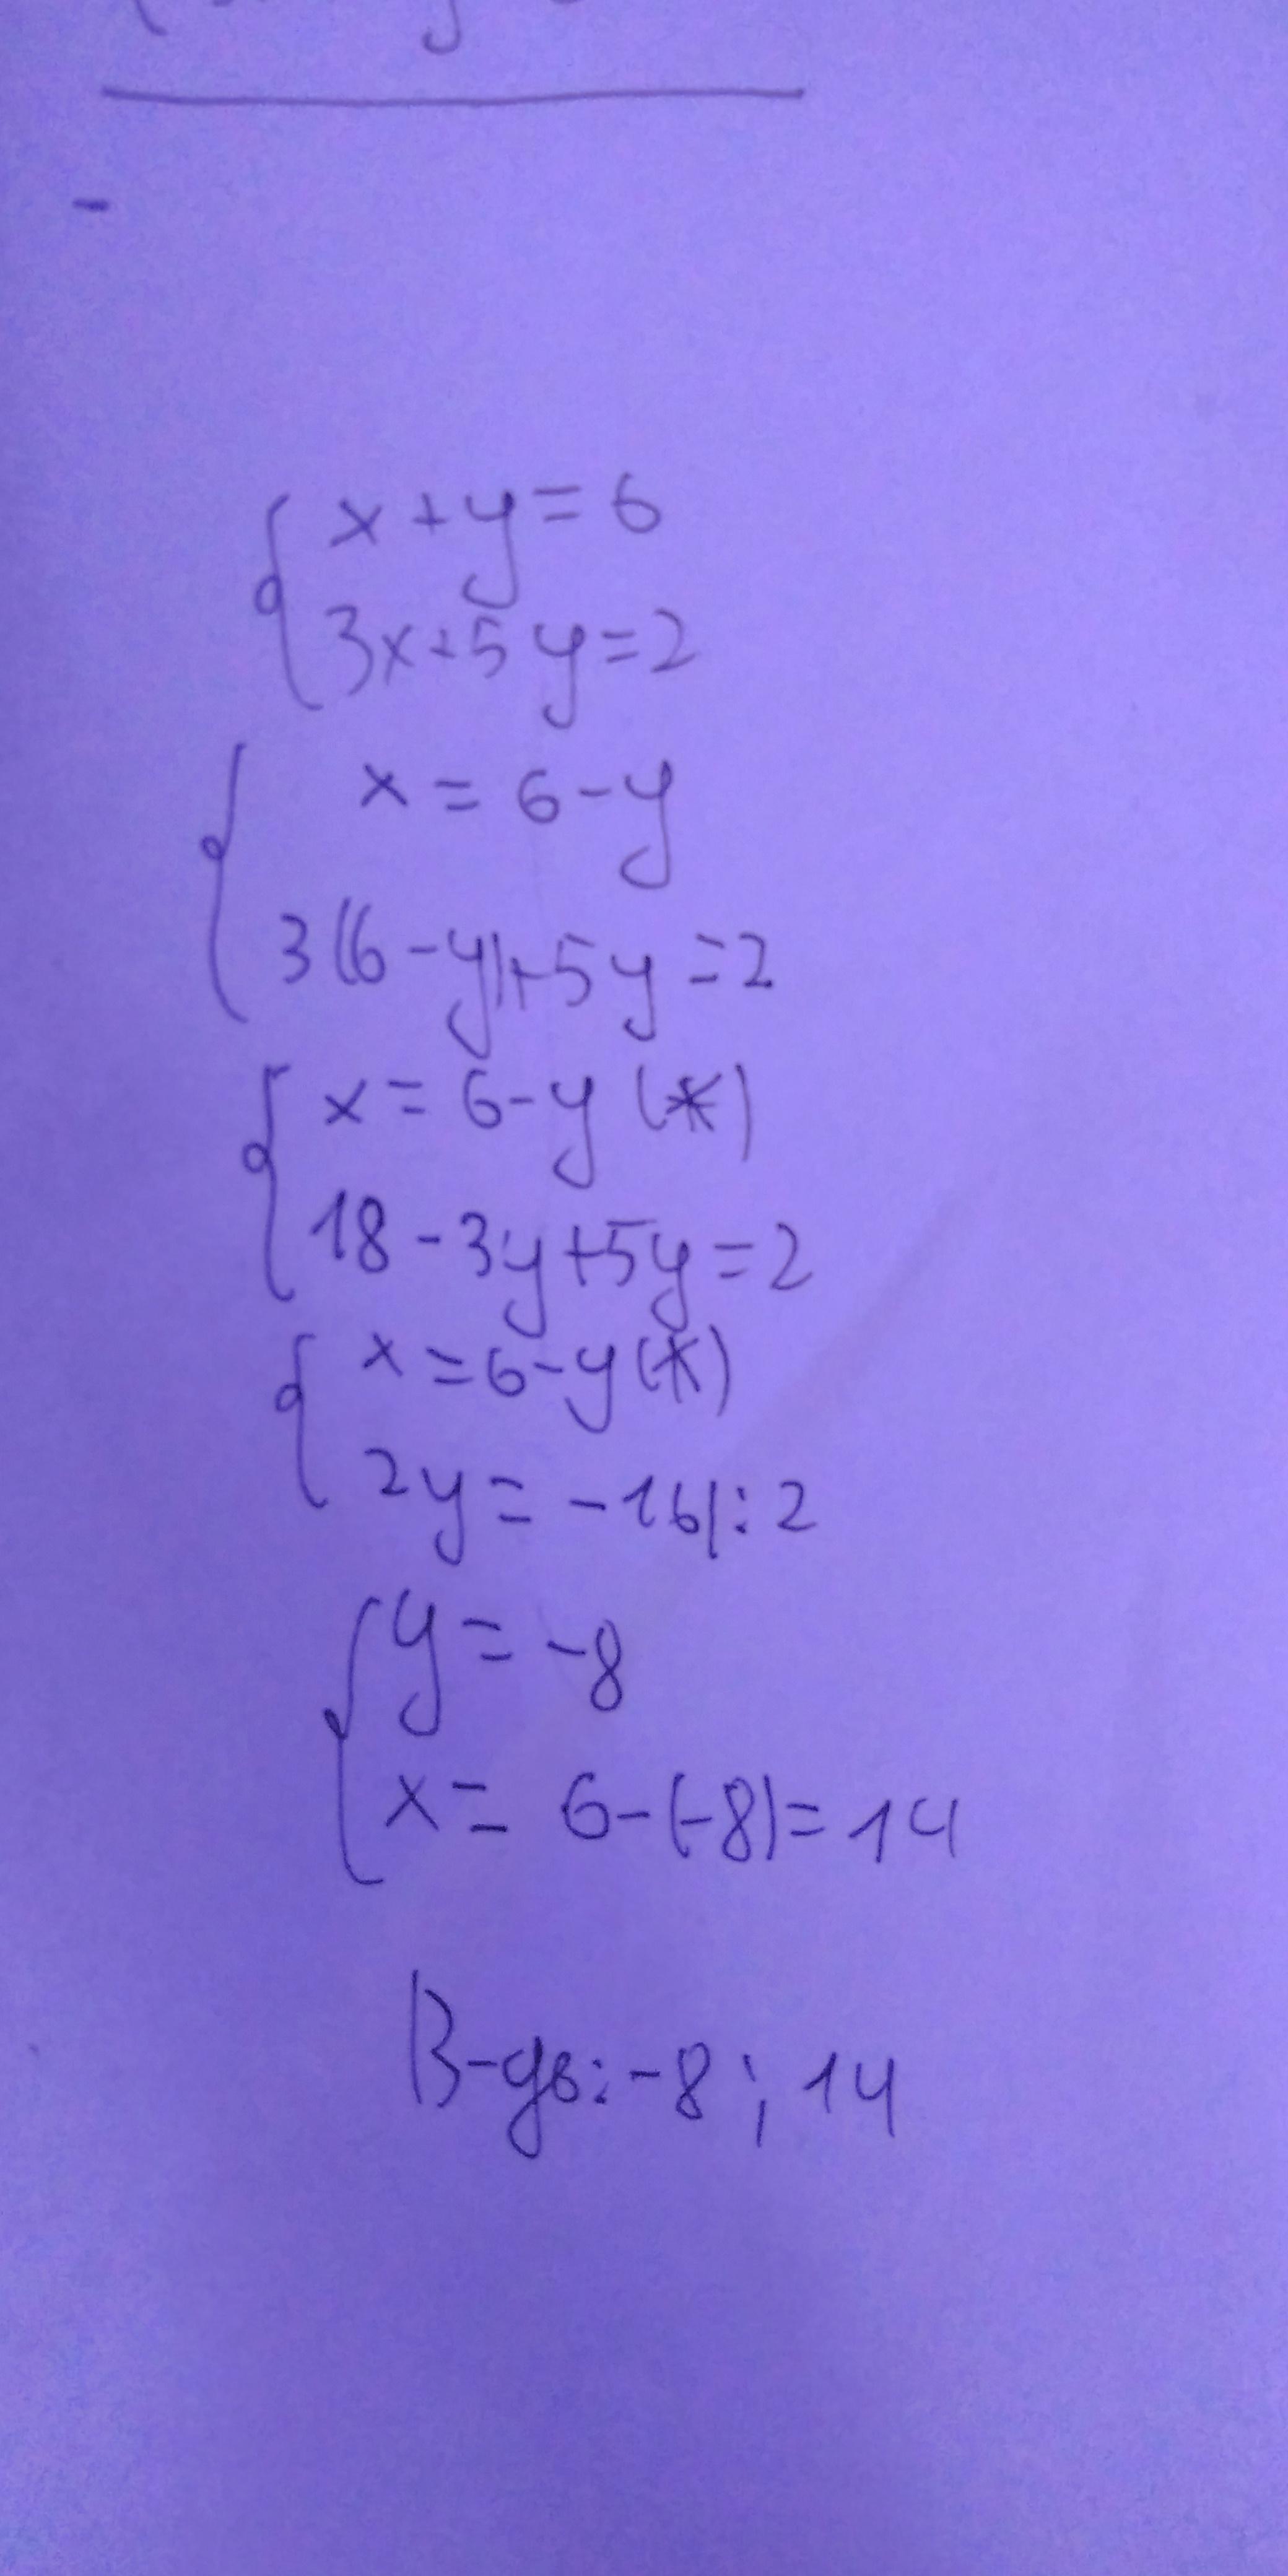 x + y = 6
3x + 5y = 2
x = 6 - y
3(6 - y) + 5y = 2
x = 6 - y (*)
18 - 3y + 5y = 2
x = 6 - y (*)
2y = -16 |: 2
y = -8
x = 6 - (-8) = 14
В-дь: -8 ; 14